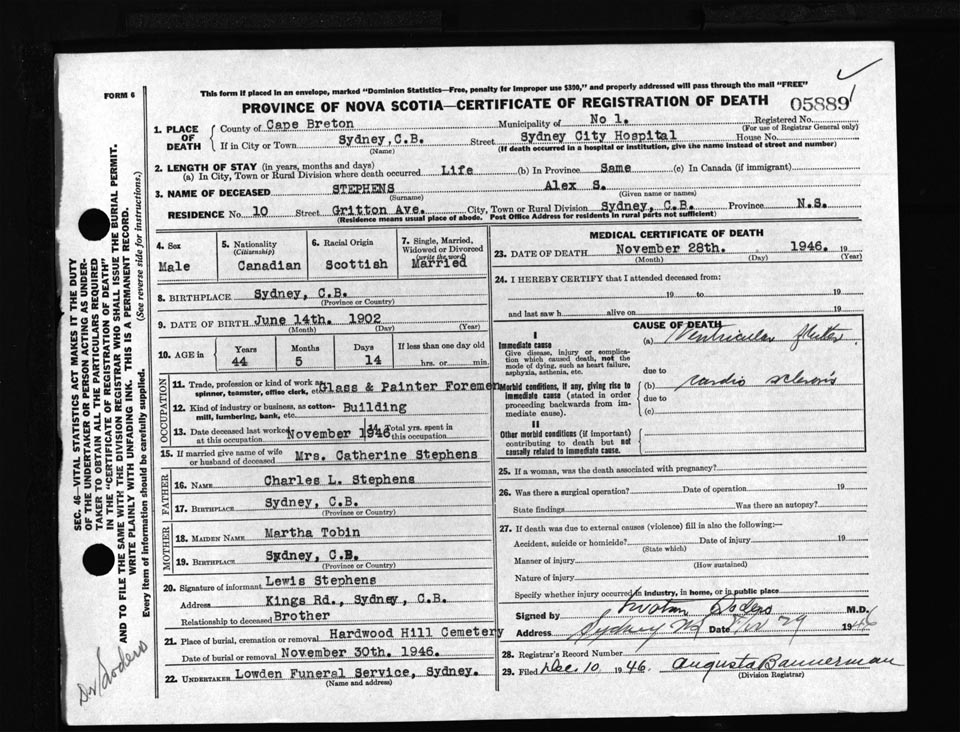 FORM 6
This form if placed in an envelope, marked "Dominion Statistics—Free, penalty for improper use $300," and properly addressed will pass through the mail "FREE"
PROVINCE OF NOVA SCOTIA—CERTIFICATE OF REGISTRATION OF DEATH 05889
1. PLACE OF DEATH
County of Cape Breton Municipality of No 1. Registered No.
(For use of Registrar General only)
If in City or Town Sydney, C.B. Street Sydney City Hospital House No.
(Name) (If death occurred in a hospital or institution, give the name instead of street and number)
2. LENGTH OF STAY (in years, months and days)
(a) In City, Town or Rural Division where death occurred Life (b) In Province Same (c) In Canada (if immigrant)
3. NAME OF DECEASED STEPHENS Alex S.
(Surname) (Given name or names)
RESIDENCE No. 10 Street Gritton Ave. City, Town or Rural Division Sydney, C.B. Province N.S.
(Residence means usual place of abode. Post Office Address for residents in rural parts not sufficient)
4. Sex
Male
5. Nationality
(Citizenship)
Canadian
6. Racial Origin
Scottish
7. Single, Married, Widowed or Divorced
(write the word)
Married
8. BIRTHPLACE Sydney, C.B.
(Province or Country)
9. DATE OF BIRTH June 14th. 1902
(Month) (Day) (Year)
10. AGE in Years Months Days If less than one day old
44 5 14 hrs. or min.
OCCUPATION
11. Trade, profession or kind of work as Glass & Painter Foremen
spinner, teamster, office clerk, etc.
12. Kind of industry or business, as cotton- Building
mill, lumbering, bank, etc.
13. Date deceased last worked at this occupation November 1946 14. Total yrs. spent in this occupation
15. If married give name of wife or husband of deceased Mrs. Catherine Stephens
FATHER
16. NAME Charles L. Stephens
17. BIRTHPLACE Sydney, C.B.
(Province or Country)
MOTHER
18. MAIDEN NAME Martha Tobin
19. BIRTHPLACE Sydney, C.B.
(Province or Country)
20. Signature of informant Lewis Stephens
Address Kings Rd., Sydney, C.B.
Relationship to deceased Brother
21. Place of burial, cremation or removal Hardwood Hill Cemetery
Date of burial or removal November 30th. 1946.
22. UNDERTAKER Lowden Funeral Service, Sydney.
(Name and address)
MEDICAL CERTIFICATE OF DEATH
23. DATE OF DEATH November 28th. 1946. 19
(Month) (Day) (Year)
24. I HEREBY CERTIFY that I attended deceased from:
19 to 19
and last saw h alive on 19
CAUSE OF DEATH
I
Immediate cause
Give disease, injury or complication which caused death, not the mode of dying, such as heart failure, asphyxia, asthenia, etc.
(a) Ventricular flutter
due to
Morbid conditions, if any, giving rise to immediate cause (stated in order proceeding backwards from immediate cause).
(b) cardio sclerosis
due to
(c)
II
Other morbid conditions (if important) contributing to death but not causally related to immediate cause.
25. If a woman, was the death associated with pregnancy?
26. Was there a surgical operation? Date of operation 19
State findings Was there an autopsy?
27. If death was due to external causes (violence) fill in also the following:—
Accident, suicide or homicide? Date of injury 19
(State which)
Manner of injury
(How sustained)
Nature of injury
Specify whether injury occurred in industry, in home, or in public place
Signed by M.D.
Address Sydney NS Date 29 1946
28. Registrar's Record Number
29. Filed Dec. 10, 1946. Augusta Bannerman
(Division Registrar)
SEC. 46—VITAL STATISTICS ACT MAKES IT THE DUTY
OF THE UNDERTAKER OR PERSON ACTING AS UNDER-
TAKER TO OBTAIN ALL THE PARTICULARS REQUIRED
IN THE "CERTIFICATE OF REGISTRATION OF DEATH"
AND TO FILE THE SAME WITH THE DIVISION REGISTRAR WHO SHALL ISSUE THE BURIAL PERMIT.
WRITE PLAINLY WITH UNFADING INK. THIS IS A PERMANENT RECORD.
Every item of information should be carefully supplied. (See reverse side for instructions.)
Dr Sodero